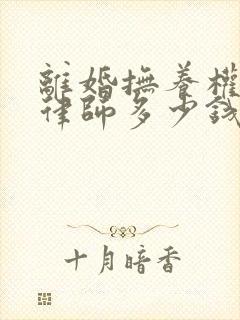 離婚撫養權
律師多少錢
十月暗香